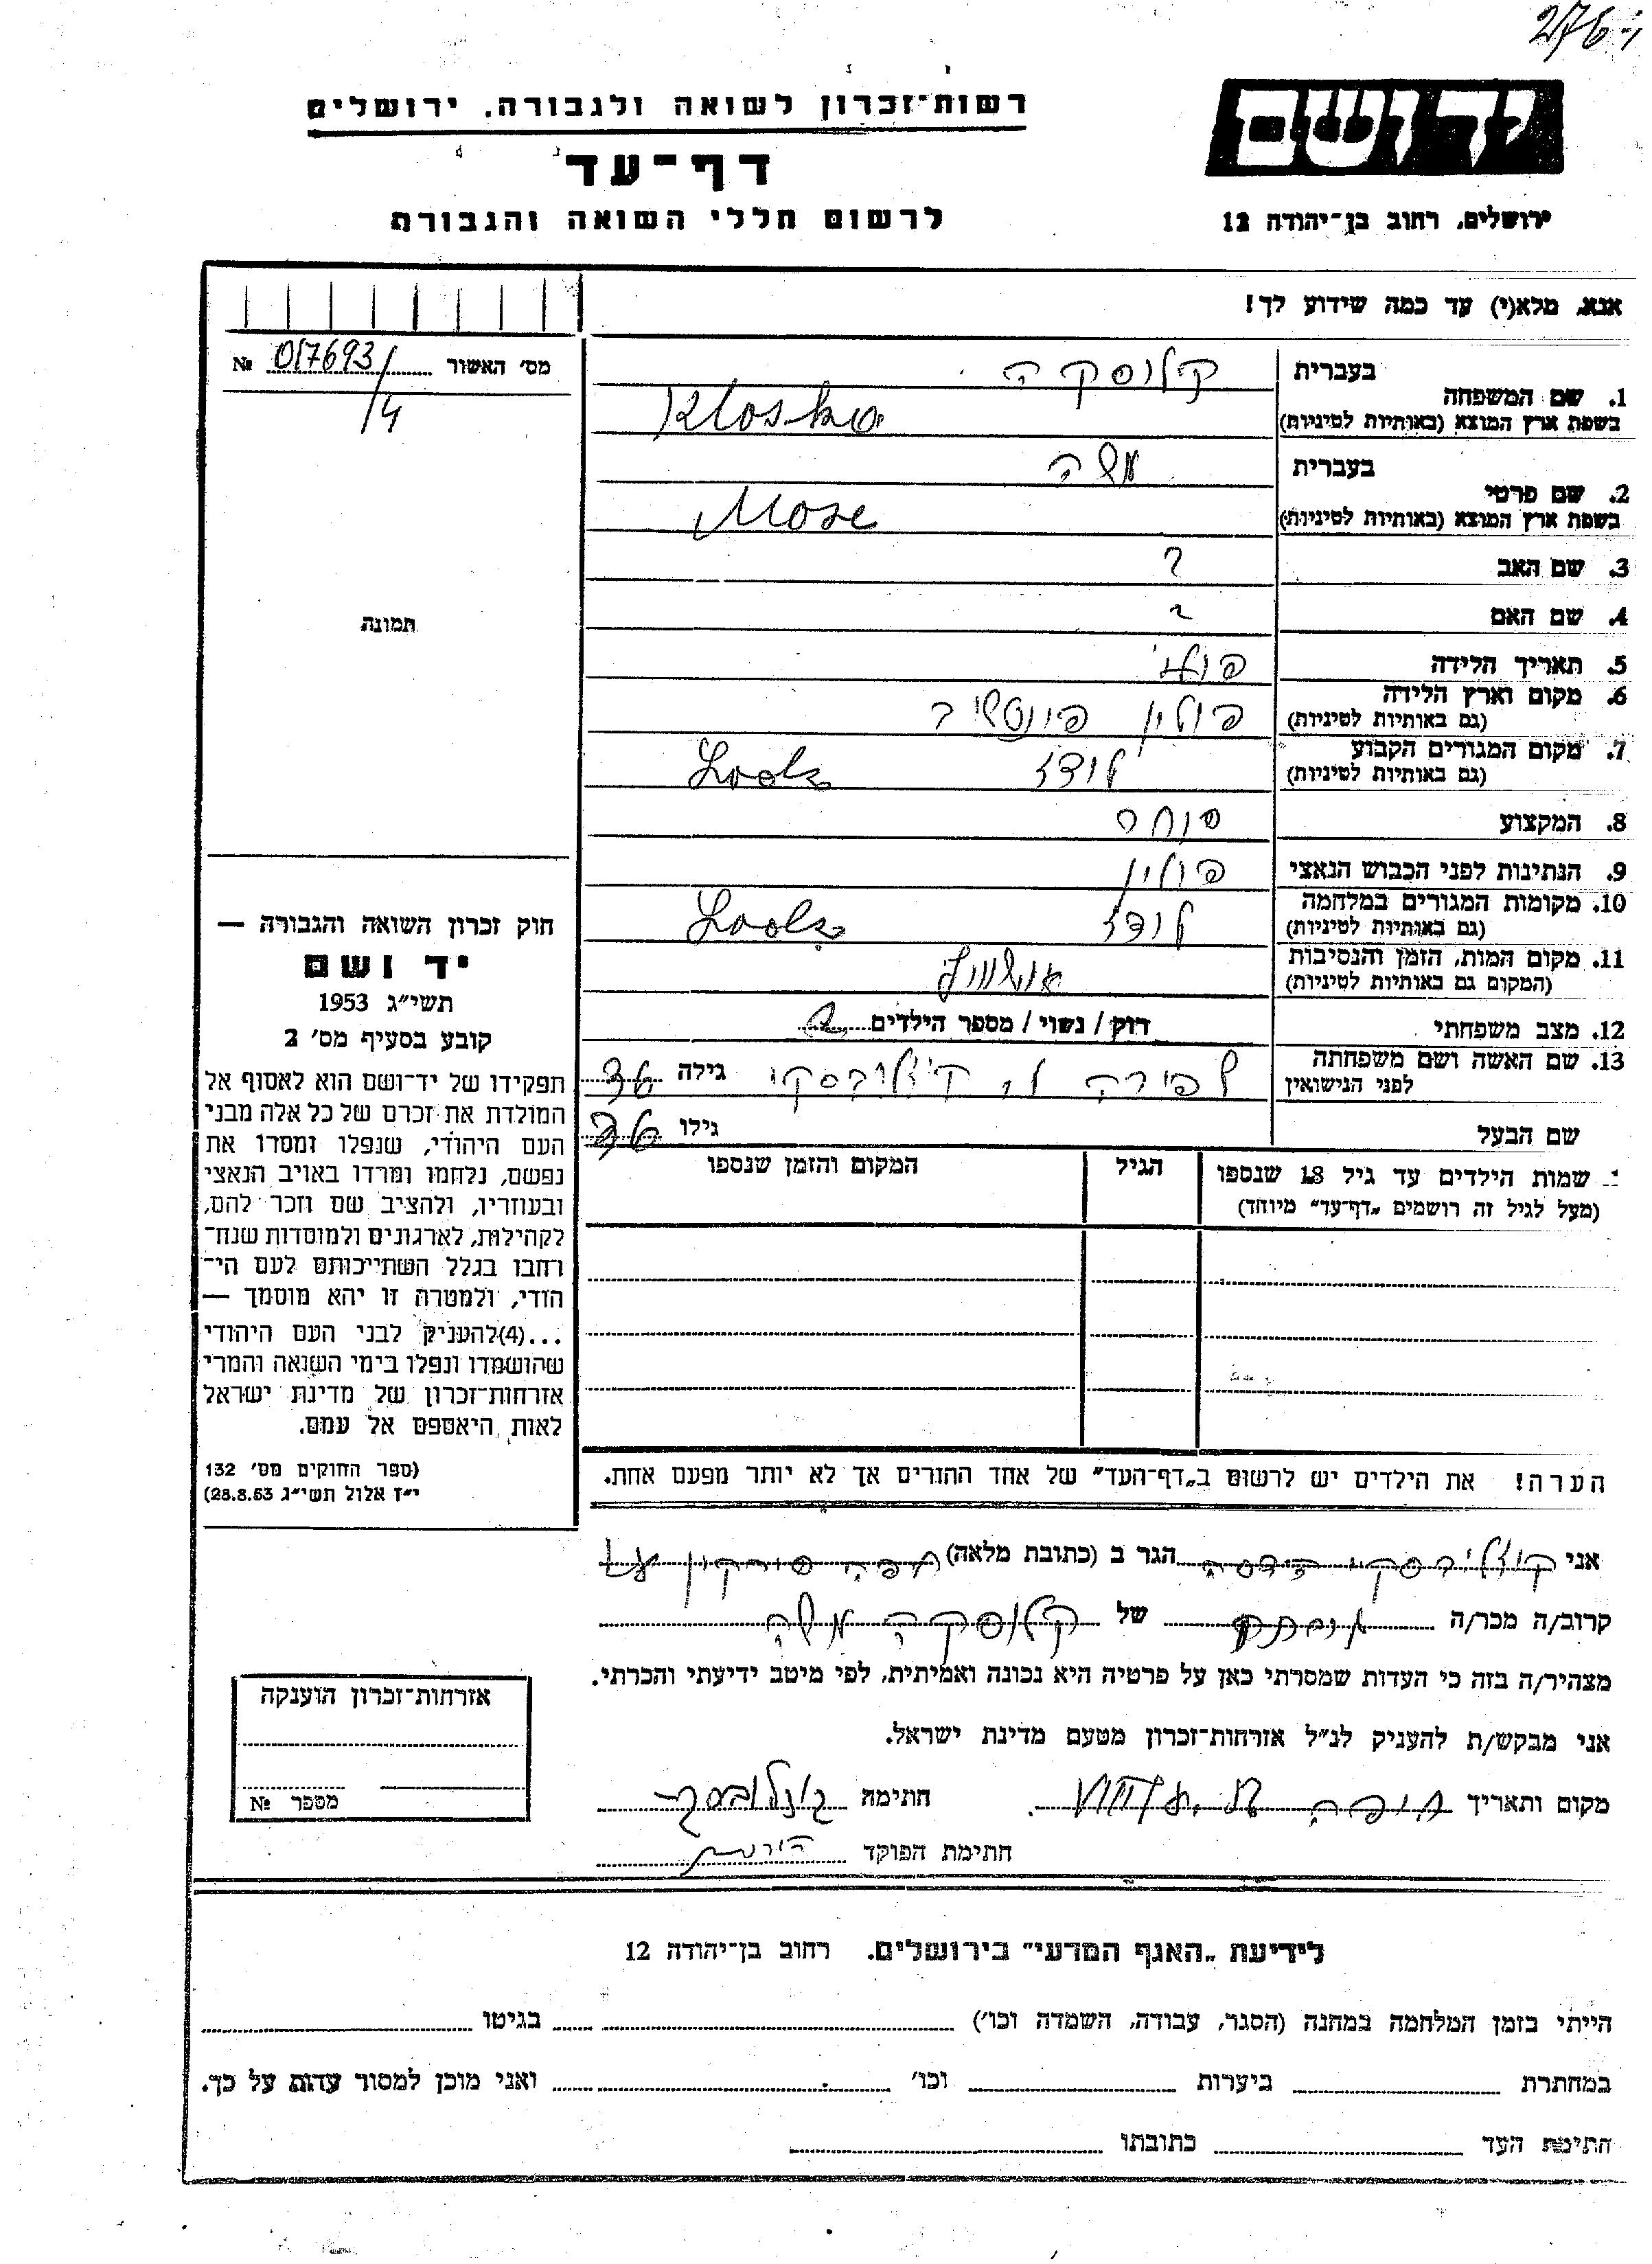 276-י
יד ושם
ירושלים, רחוב בן־יהודה 12
רשות־זכרון לשואה ולגבורה, ירושלים
דף־עד
לרשום חללי השואה והגבורה
אנא, מלא(י) עד כמה שידוע לך!
מס׳ האשור № 017693/
/4
תמונה
1. שם המשפחה בעברית קלוסקה
בשפת ארץ המוצא (באותיות לטיניות) Kloska
2. שם פרטי בעברית משה
בשפת ארץ המוצא (באותיות לטיניות) Mose
3. שם האב ?
4. שם האם ?
5. תאריך הלידה
6. מקום וארץ הלידה
(גם באותיות לטיניות) פולין
7. מקום המגורים הקבוע
(גם באותיות לטיניות) לודז Lodz
8. המקצוע סוחר
9. הנתינות לפני הכבוש הנאצי פולין
10. מקומות המגורים במלחמה
(גם באותיות לטיניות) לודז Lodz
11. מקום המות, הזמן והנסיבות
(המקום גם באותיות לטיניות)
12. מצב משפחתי רוק / נשוי / מספר הילדים 2
13. שם האשה ושם משפחתה
לפני הנישואין גילה
שם הבעל גילו
שמות הילדים עד גיל 18 שנספו
(מעל לגיל זה רושמים „דף־עד״ מיוחד)
הגיל
המקום והזמן שנספו
הערה! את הילדים יש לרשום ב„דף־העד״ של אחד ההורים אך לא יותר מפעם אחת.
חוק זכרון השואה והגבורה —
יד ושם
תשי״ג 1953
קובע בסעיף מס׳ 2
תפקידו של יד־ושם הוא לאסוף אל
המולדת את זכרם של כל אלה מבני
העם היהודי, שנפלו ומסרו את
נפשם, נלחמו ומרדו באויב הנאצי
ובעוזריו, ולהציב שם וזכר להם,
לקהילות, לארגונים ולמוסדות שנח־
רבו בגלל השתייכותם לעם הי־
הודי, ולמטרה זו יהא מוסמך —
...(4)להעניק לבני העם היהודי
שהושמדו ונפלו בימי השואה והמרי
אזרחות־זכרון של מדינת ישראל
לאות היאספם אל עמם.
(ספר החוקים מס׳ 132
י״ז אלול תשי״ג 28.8.53)
אני הגר ב (כתובת מלאה) חיפה
קרוב/ה מכר/ה של קלוסקה משה
מצהיר/ה בזה כי העדות שמסרתי כאן על פרטיה היא נכונה ואמיתית, לפי מיטב ידיעתי והכרתי.
אני מבקש/ת להעניק לנ״ל אזרחות־זכרון מטעם מדינת ישראל.
מקום ותאריך חיפה חתימה
חתימת הפוקד
אזרחות־זכרון הוענקה
מספר №
לידיעת „האגף המדעי״ בירושלים. רחוב בן־יהודה 12
הייתי בזמן המלחמה במחנה (הסגר, עבודה, השמדה וכו׳) בגיטו
במחתרת ביערות וכו׳ ואני מוכן למסור עדות על כך.
חתימת העד כתובתו